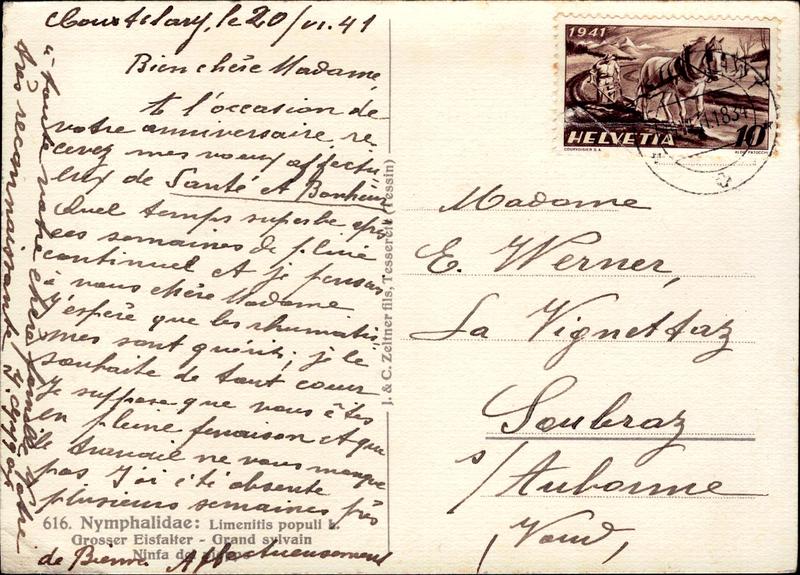 le 20/VI.41
Bien chère Madame,
A l'occasion de
votre anniversaire, re-
cevez mes vœux affectu-
eux de Santé et Bonheur
Quel temps superbe après
ces semaines de pluie
continuel et je pensais
à vous chère Madame
J'espère que les rhumatis-
mes sont guéris, je le
souhaite de tout cœur
Je suppose que vous êtes
en pleine fenaison et que
le travail ne vous manque
pas J'ai été absente
plusieurs semaines près
de Bienne. Affectueusement
à toute votre chère famille Votre
très reconnaissante
616. Nymphalidae: Limenitis populi L.
Grosser Eisfalter - Grand sylvain
Ninfa del
J. & C. Zeltner fils, Tesserete (Tessin)
1941
HELVETIA
10
COURVOISIER S.A.
ALDO PATOCCHI
Madame
E. Werner,
La Vignettaz
Soubraz
s/Aubonne
(Vaud)